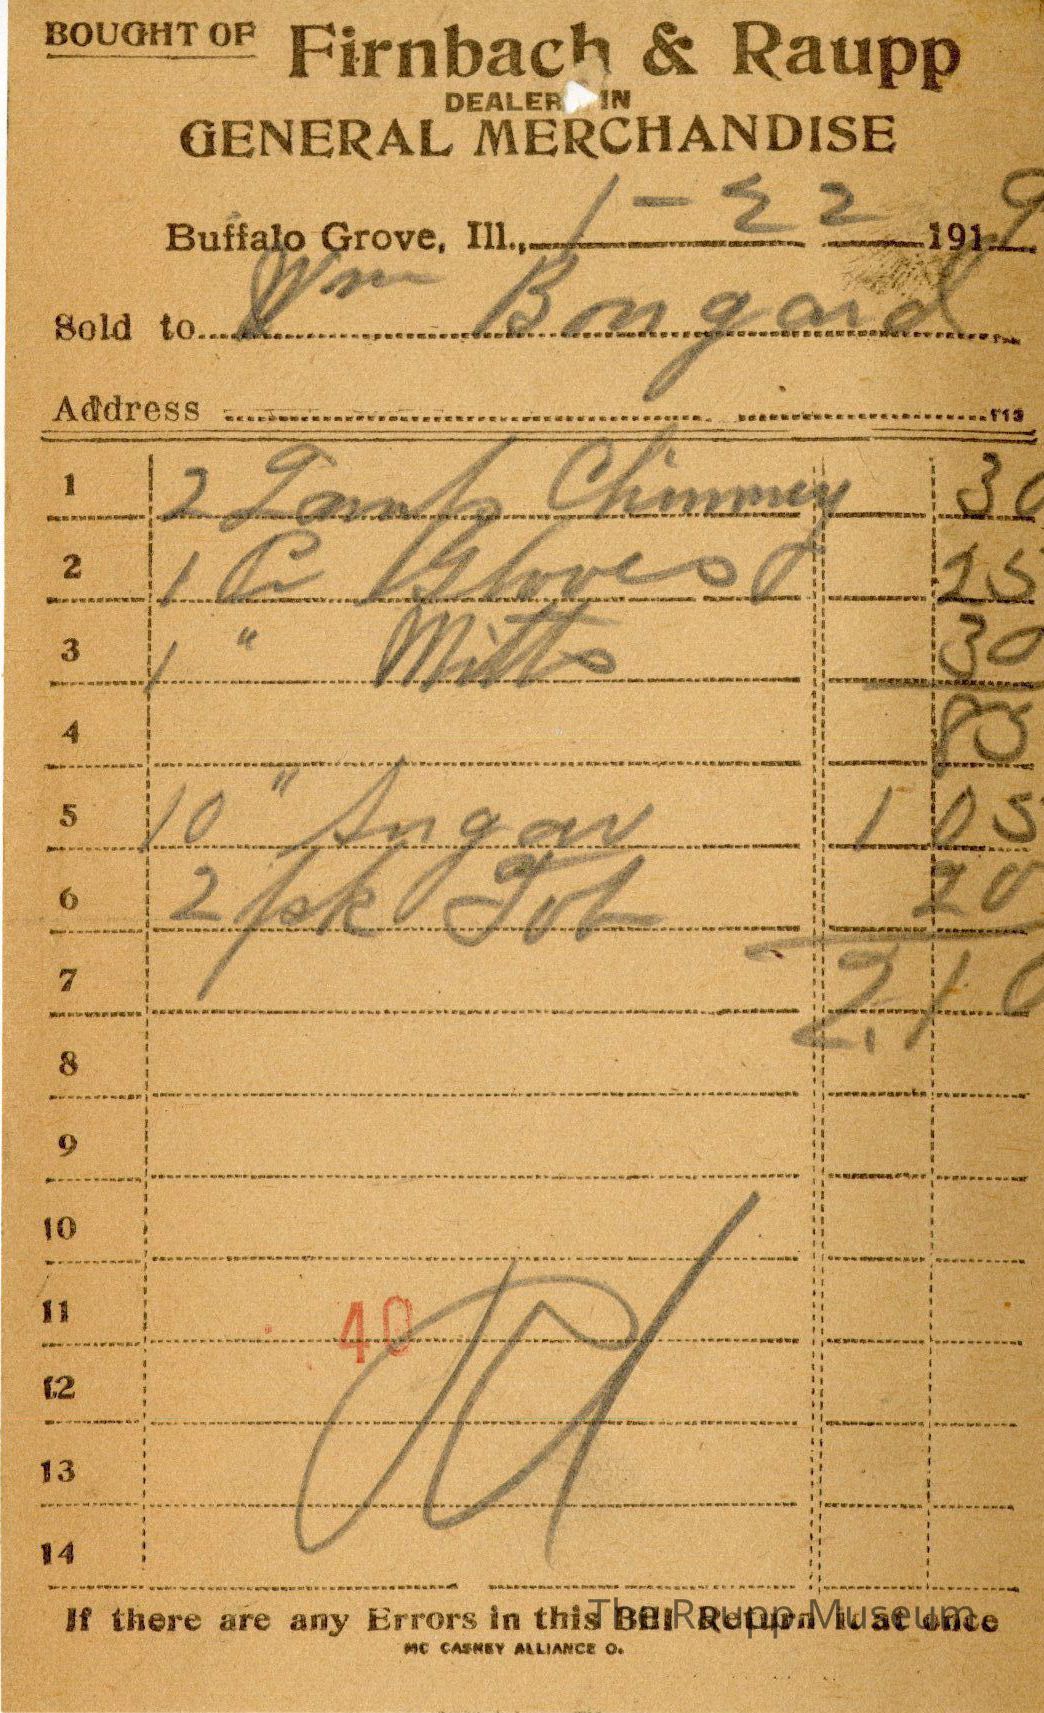 BOUGHT OF Firnbach & Raupp
DEALERS IN
GENERAL MERCHANDISE
Buffalo Grove, Ill., 1-22 1919
Sold to Wm Bongard
Address 113
1 2 Lamp Chimney 30
2 1 Pr Gloves 25
3 1 " Mitts 30
4 85
5 10 " Sugar 1 05
6 2 pk Tob 20
7 2.10
8
9
10
11 40
12
13
14
If there are any Errors in this Bill Return it at once
The Raupp Museum
MC CASKEY ALLIANCE O.